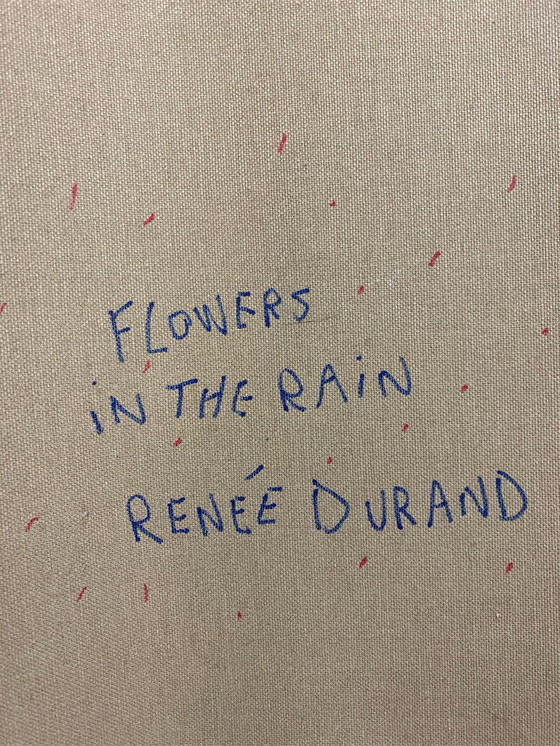 FLOWERS
iN THE RAiN
RENÉE DURAND